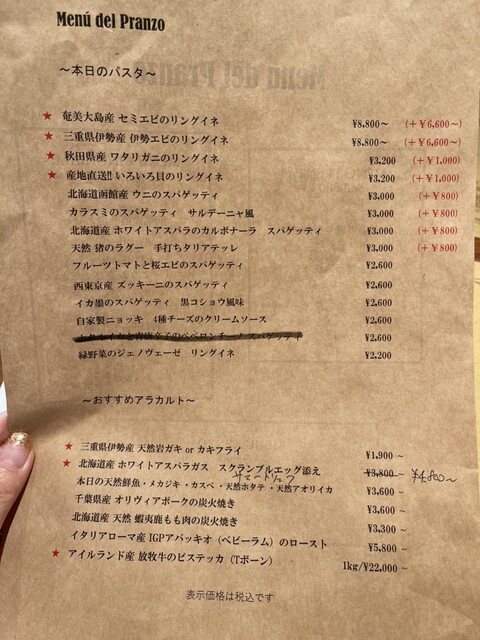 Menú del Pranzo
～本日のパスタ～
★ 奄美大島産 セミエビのリングイネ ¥8,800～ (+¥6,600～)
★ 三重県伊勢産 伊勢エビのリングイネ ¥8,800～ (+¥6,600～)
★ 秋田県産 ワタリガニのリングイネ ¥3,200 (+¥1,000)
★ 産地直送!! いろいろ貝のリングイネ ¥3,200 (+¥1,000)
北海道函館産 ウニのスパゲッティ ¥3,000 (+¥800)
カラスミのスパゲッティ サルデーニャ風 ¥3,000 (+¥800)
北海道産 ホワイトアスパラのカルボナーラ スパゲッティ ¥3,000 (+¥800)
天然 猪のラグー 手打ちタリアテッレ ¥3,000 (+¥800)
フルーツトマトと桜エビのスパゲッティ ¥2,600
西東京産 ズッキーニのスパゲッティ ¥2,600
イカ墨のスパゲッティ 黒コショウ風味 ¥2,600
自家製ニョッキ 4種チーズのクリームソース ¥2,600
青唐辛子のペペロンチーノ スパゲッティ ¥2,600
緑野菜のジェノヴェーゼ リングイネ ¥2,200
～おすすめアラカルト～
★ 三重県伊勢産 天然岩ガキ or カキフライ ¥1,900 ~
★ 北海道産 ホワイトアスパラガス スクランブルエッグ添え ¥3,800 ~ ¥4,800~
サマートリュフ
本日の天然鮮魚・メカジキ・カスベ・天然ホタテ・天然アオリイカ ¥3,600 ~
千葉県産 オリヴィアポークの炭火焼き ¥3,600 ~
北海道産 天然 蝦夷鹿もも肉の炭火焼き ¥3,300 ~
イタリアローマ産 IGPアバッキオ（ベビーラム）のロースト ¥5,800 ~
★ アイルランド産 放牧牛のビステッカ（Tボーン） 1kg/¥22,000 ~
表示価格は税込です